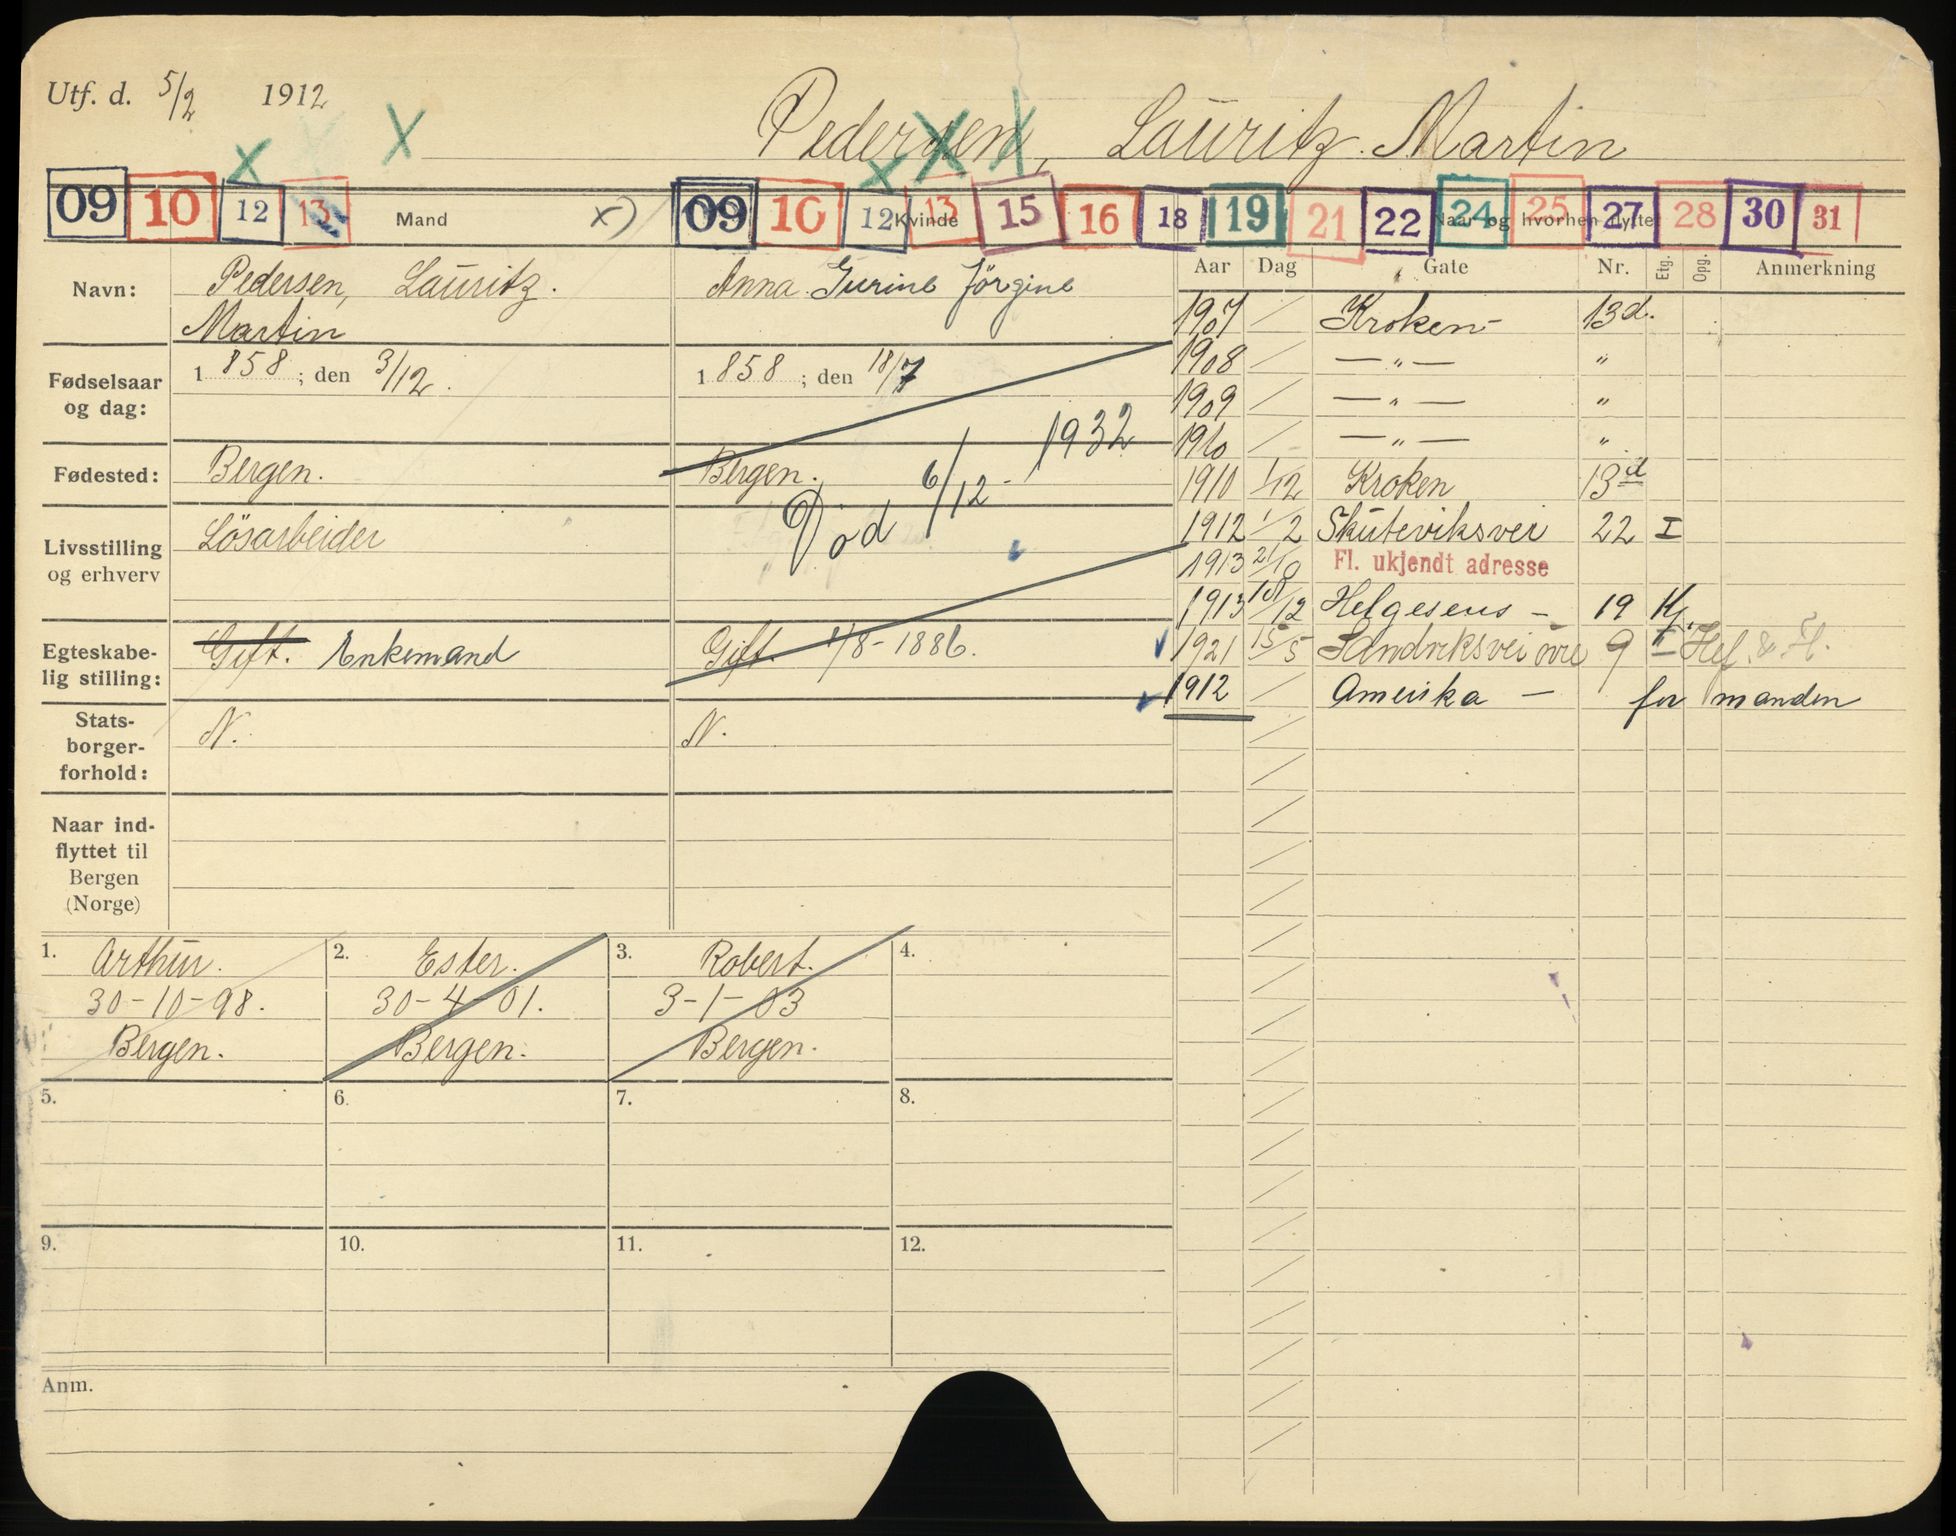 Utf. d. 5/2 1912
Pedersen, Lauritz Martin
09 10 12 13 Mand x) 09 10 12 Kvinde 13 15 16 18 19 21 22 24 25 27 28 30 31
Naar og hvorhen flyttet
Aar Dag Gate Nr. Etg. Opg. Anmerkning
Navn: Pedersen, Lauritz.
Martin
Anna Gurine Jörgine
Fødselsaar og dag:
1858; den 3/12.
1858; den 18/7
Fødested: Bergen.
Bergen.
Død 6/12 - 1932
Livsstilling og erhverv
Lösarbeider
Egteskabe-
lig stilling:
Gift. Enkemand
Gift. 1/8-1886.
Stats-
borger-
forhold:
N.
N.
Naar ind-
flyttet til
Bergen
(Norge)
1907 Kroken- 13d.
1908 — " — "
1909 — " — "
1910 — " — "
1910 1/12 Kroken 13d
1912 1/2 Skuteviksvei 22 I
1913 21/10 Fl. ukjendt adresse
1913 18/12 Helgesens - 19 Kj.
1921 15/5 Sandviksvei øvre 9 II Hef. & Fl.
1912 Amerika — for manden
1. Arthur.
30-10-98.
Bergen.
2. Ester.
30-4-01.
Bergen.
3. Robert.
3-1-03
Bergen.
4.
5.
6.
7.
8.
9.
10.
11.
12.
Anm.